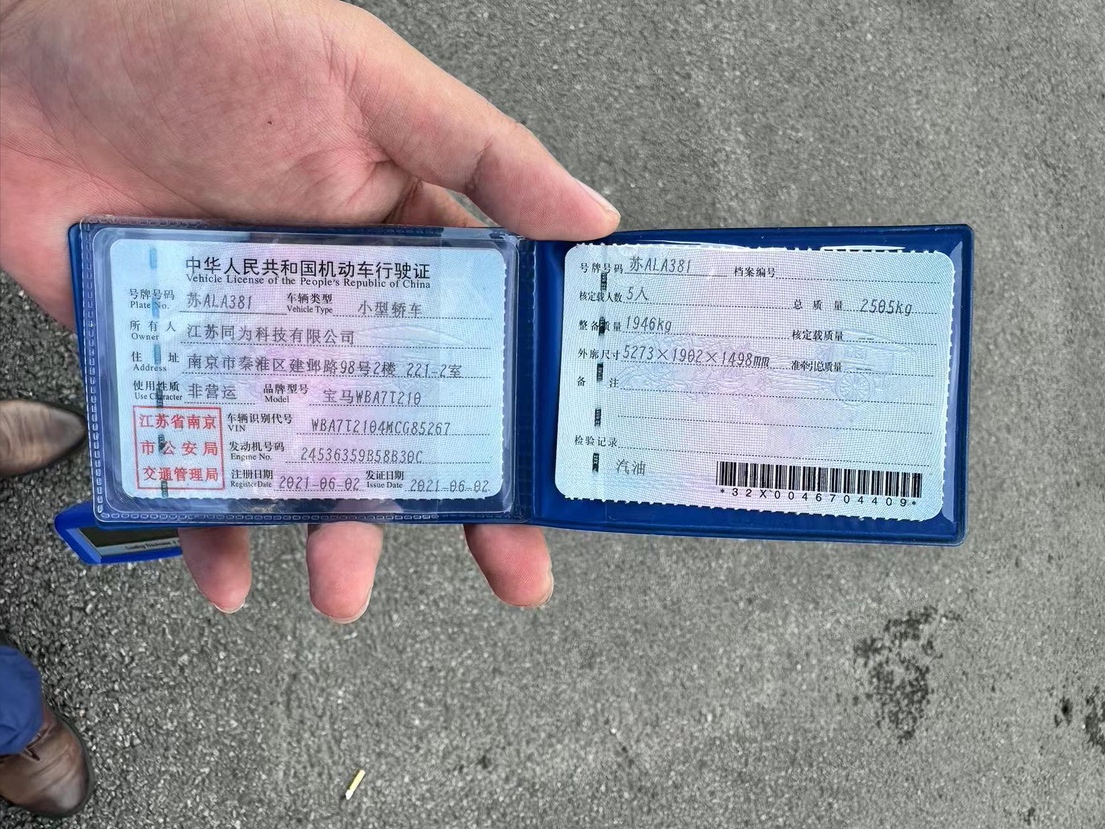 中华人民共和国机动车行驶证
Vehicle License of the People's Republic of China
号牌号码 苏ALA381 车辆类型 小型轿车
Plate No. Vehicle Type
所有人 江苏同为科技有限公司
Owner
住址 南京市秦淮区建邺路98号2楼 221-2室
Address
使用性质 非营运 品牌型号 宝马WBA7T210
Use Character Model
江苏省南京
市公安局
交通管理局
车辆识别代号 WBA7T2104MCG85267
VIN
发动机号码 24536359B58B30C
Engine No.
注册日期 2021-06-02 发证日期 2021-06-02
Register Date Issue Date
号牌号码 苏ALA381 档案编号
核定载人数 5人 总质量 2505kg
整备质量 1946kg 核定载质量 --
外廓尺寸 5273×1902×1498mm 准牵引总质量 --
备注
检验记录
汽油
*32X0046704409*